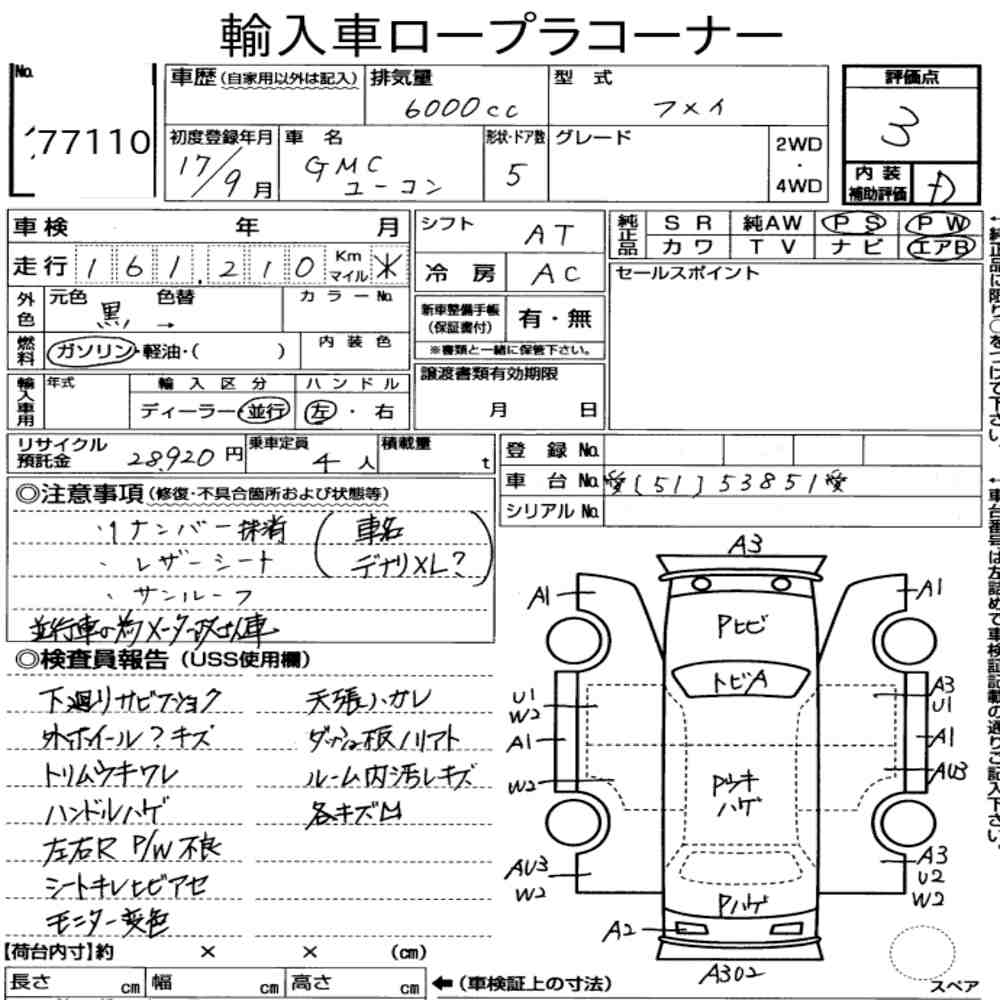 輸入車ロープラコーナー
No.
77110
車歴(自家用以外は記入)
排気量
6000cc
型式
フメイ
評価点
3
初度登録年月
17/9月
車名
GMC
ユーコン
形状・ドア数
5
グレード
2WD
・
4WD
内装
補助評価
D
車検 年 月
シフト
AT
純正品
SR 純AW PS PW
カワ TV ナビ エアB
走行 161,210 Km マイル ※
冷房
AC
セールスポイント
外色
元色 色替
黒 →
カラーNo.
新車整備手帳
(保証書付)
有・無
※書類と一緒に保管下さい。
燃料
ガソリン・軽油・( )
内装色
輸入車用
年式
輸入区分
ディーラー・並行
ハンドル
左・右
譲渡書類有効期限
月 日
リサイクル
預託金
28,920円
乗車定員
4人
積載量
t
登録No.
車台No.
愛[51]53851愛
シリアルNo.
←純正品に限り○をつけて下さい。
←車台番号は左詰めで車検証記載の通りご記入下さい。
◎注意事項(修復・不具合箇所および状態等)
・1ナンバー抹消
(車名
デナリXL?)
・レザーシート
・サンルーフ
並行車の為メーター改ざん車
◎検査員報告(USS使用欄)
下廻りサビフショク
外ホイール?キズ
トリムウキワレ
ハンドルハゲ
左右R P/W不良
シートキレヒビアセ
モニター変色
天張ハガレ
ダッシュ板ノリアト
ルーム内汚レキズ
各キズ凹
A3
A1
A1
Pヒビ
トビA
U1
W2
A1
W2
A3
U1
A1
AU3
Pウキ
ハゲ
AU3
W2
A3
U2
W2
Pハゲ
A2
A302
スペア
【荷台内寸】約 × × (cm)
長さ cm 幅 cm 高さ cm
←(車検証上の寸法)